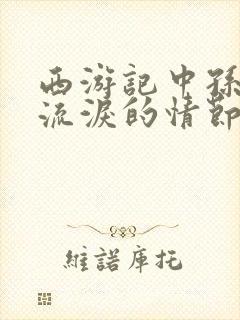 西游記中孫
流淚的情節
維諾庫托